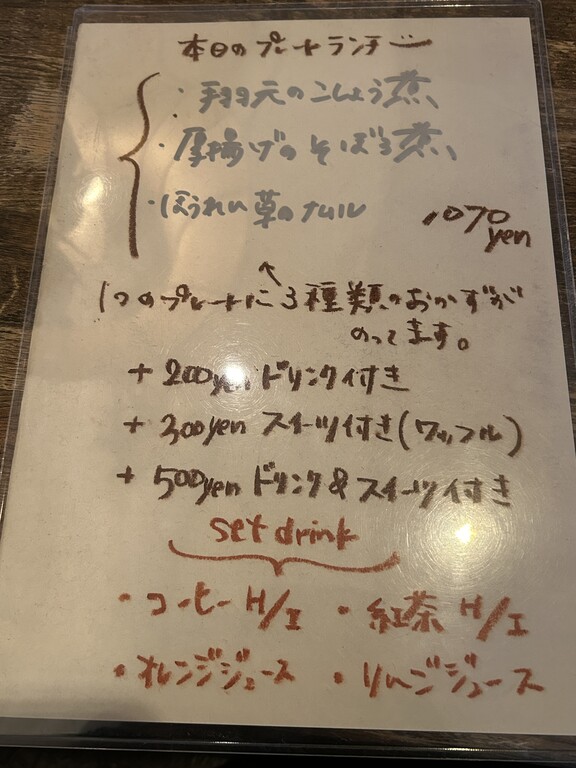 本日のプレートランチ
・手羽元のこしょう煮
・厚揚げのそぼろ煮
・ほうれい草のナムル
1070
yen
1つのプレートに3種類のおかずが
のってます。
+ 200yen ドリンク付き
+ 300yen スイーツ付き(ワッフル)
+ 500yen ドリンク&スイーツ付き
set drink
・コーヒー H/I ・紅茶 H/I
・オレンジジュース ・りんごジュース